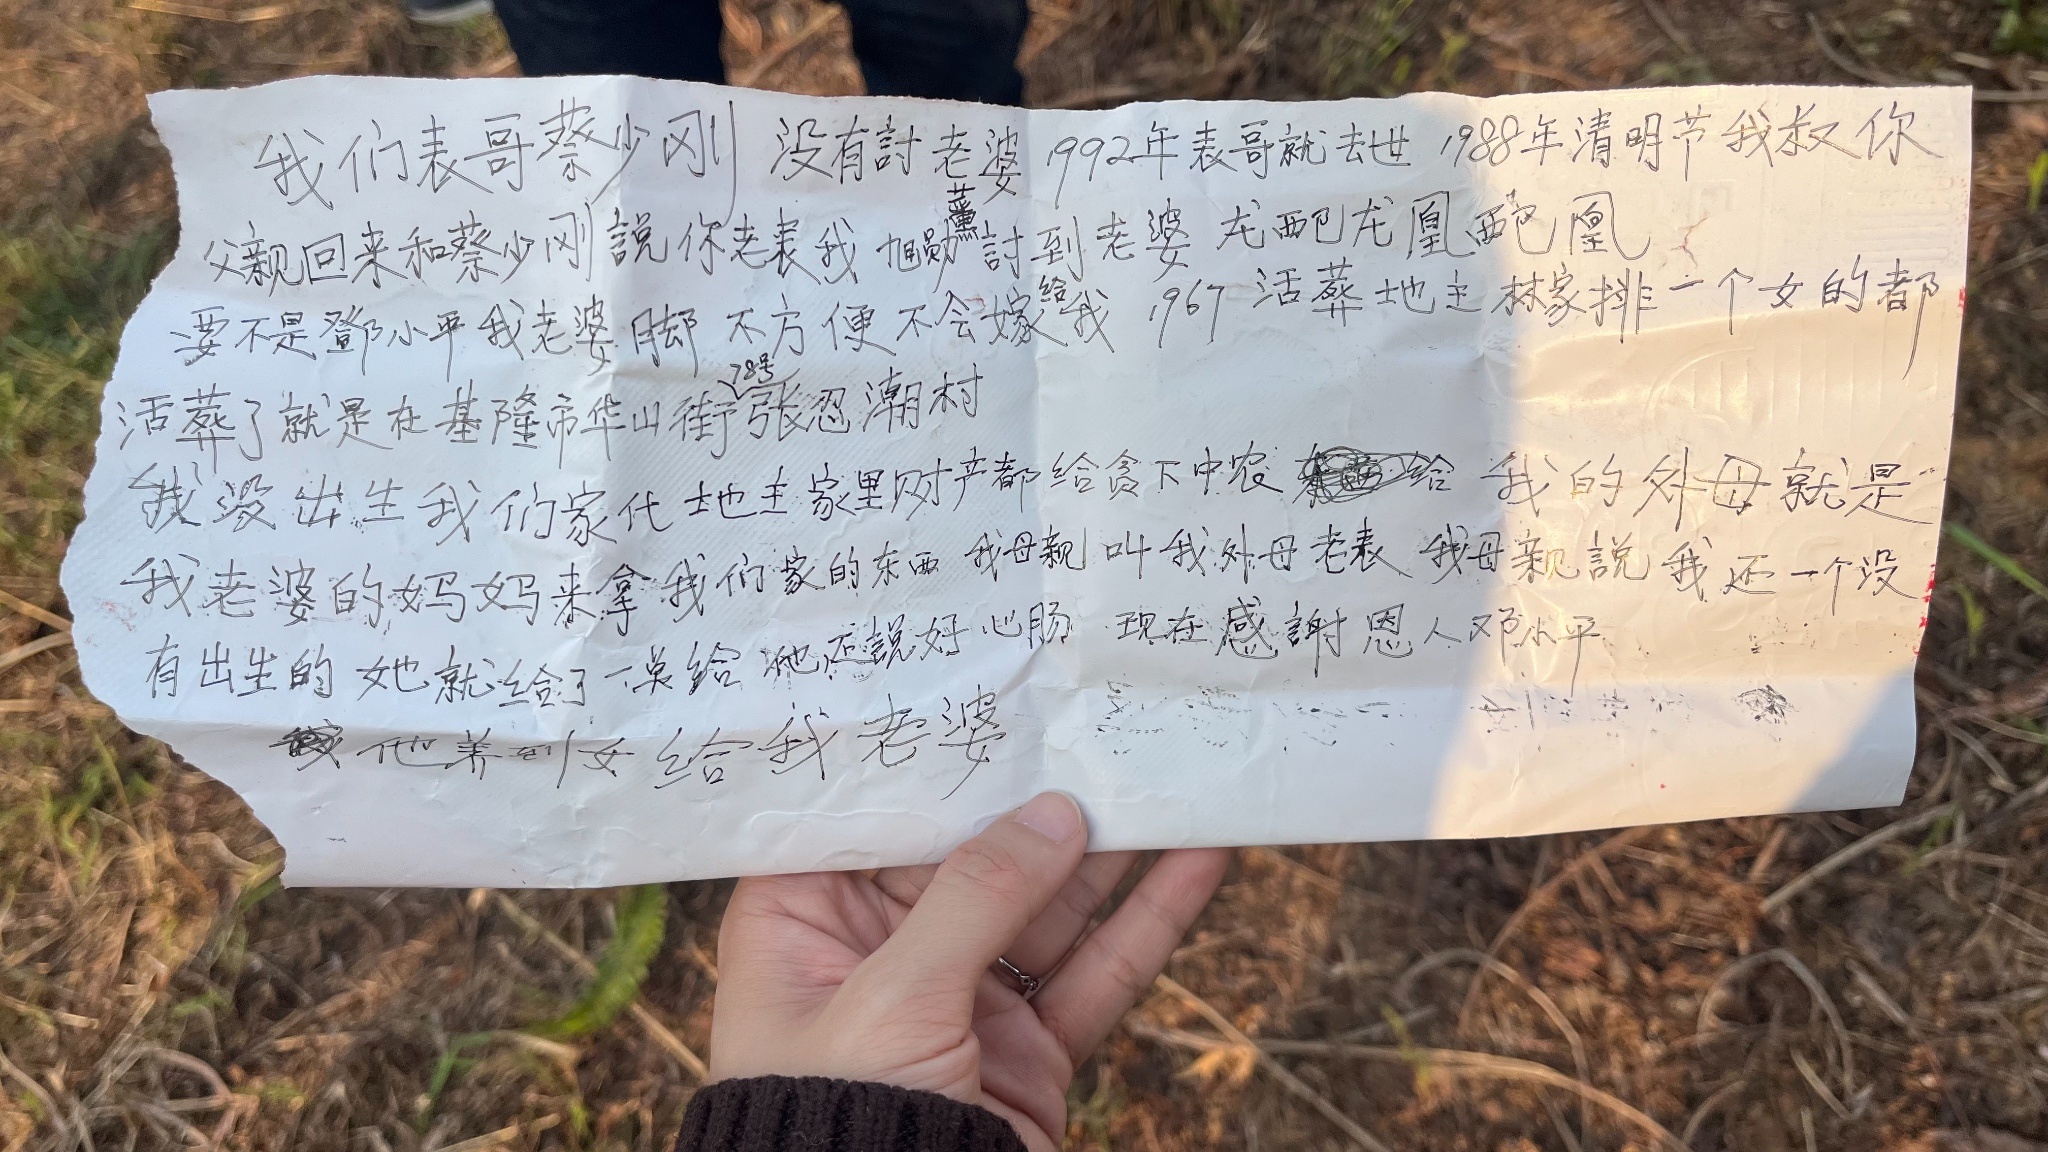 我们表哥蔡少刚 没有討老婆 1992年表哥就去世 1988年清明节我叔你
父親回来和蔡少刚説你老表我旭勋薰討到老婆 龙配龙凰配凰
要不是鄧小平我老婆脚不方便不会嫁给我 1967活葬地主林家排一个女的都
活葬了就是在基隆市华山街78号張忍潮村
我没出生我们家代地主家里财产都给贪下中农 给我的外母就是
我老婆的妈妈来拿我们家的东西 我母親叫我外母老表 我母親説我还一个没
有出生的 她就给了一点给他还説好心肠 现在感謝恩人邓小平
他养到女给我老婆